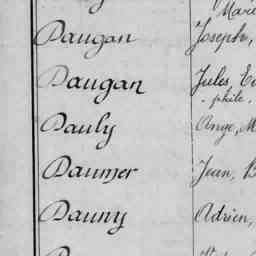 Marie
Daugan Joseph,
Daugan Jules, E
-phile.
Dauly Ange, M
Daumer Jean, B
Dauny Adrien,